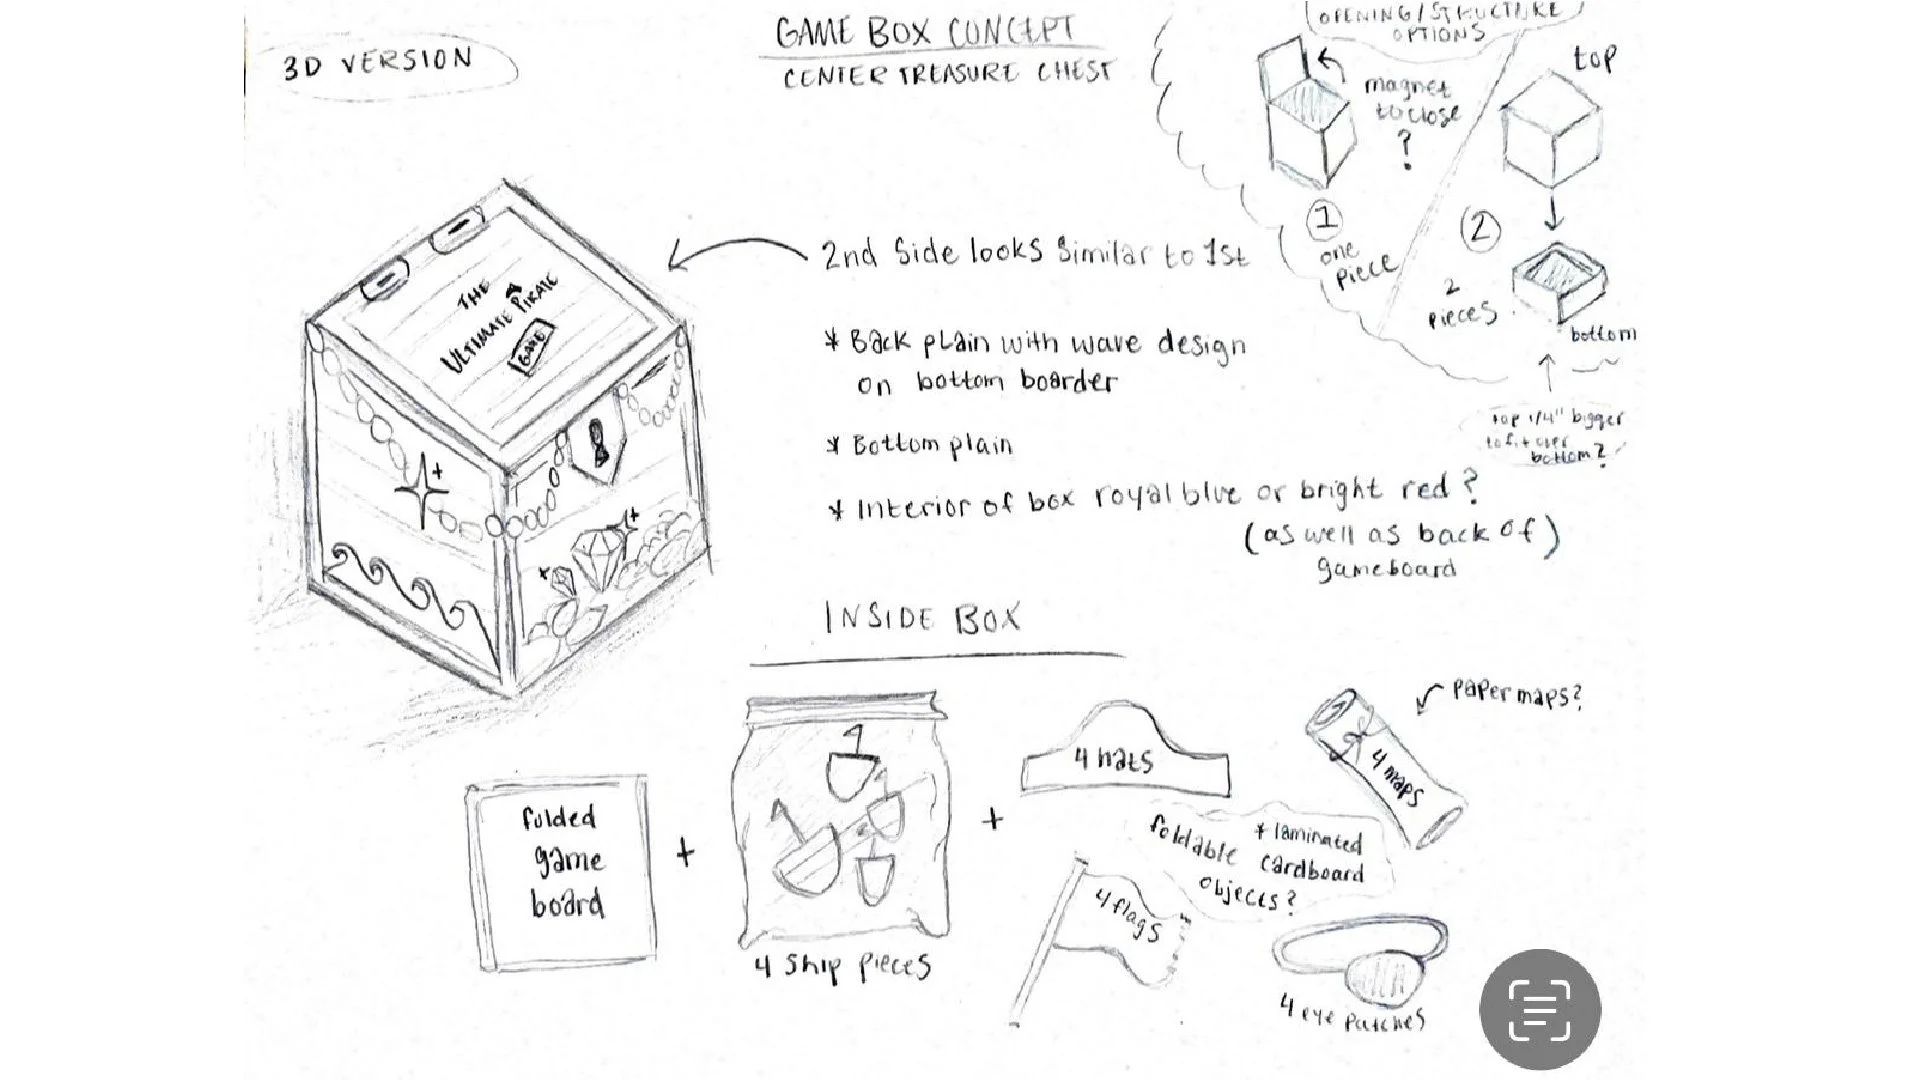 3D VERSION
GAME BOX CONCEPT
CENTER TREASURE CHEST
OPENING/STRUCTURE
OPTIONS
magnet
to close
?
1
one
piece
top
2
2
pieces
bottom
top 1/4" bigger
to fit over
bottom?
THE
ULTIMATE PIRATE
GAME
2nd Side looks Similar to 1st
* Back plain with wave design
on bottom boarder
* Bottom plain
* Interior of box royal blue or bright red?
(as well as back of)
gameboard
INSIDE BOX
folded
game
board
+
4 Ship pieces
+
4 hats
paper maps?
4 maps
* laminated
foldable cardboard
objects?
4 flags
4 eye patches